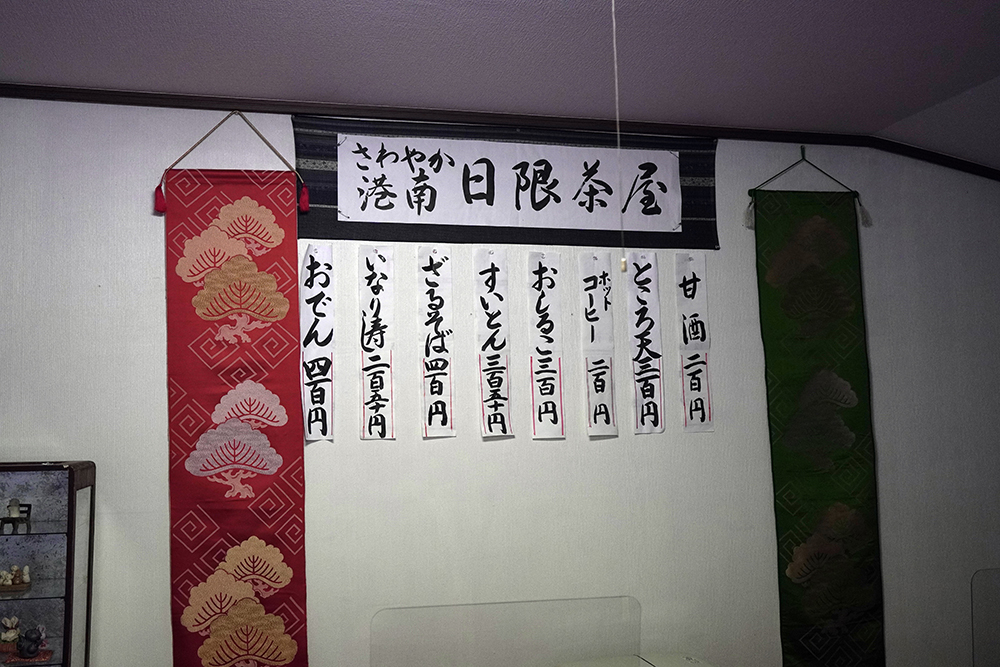 さわやか
港南
日限茶屋
甘酒 二百円
ところ天 三百円
ホットコーヒー 二百円
おしるこ 三百円
すいとん 三百五十円
ざるそば 四百円
いなり寿し 二百五十円
おでん 四百円